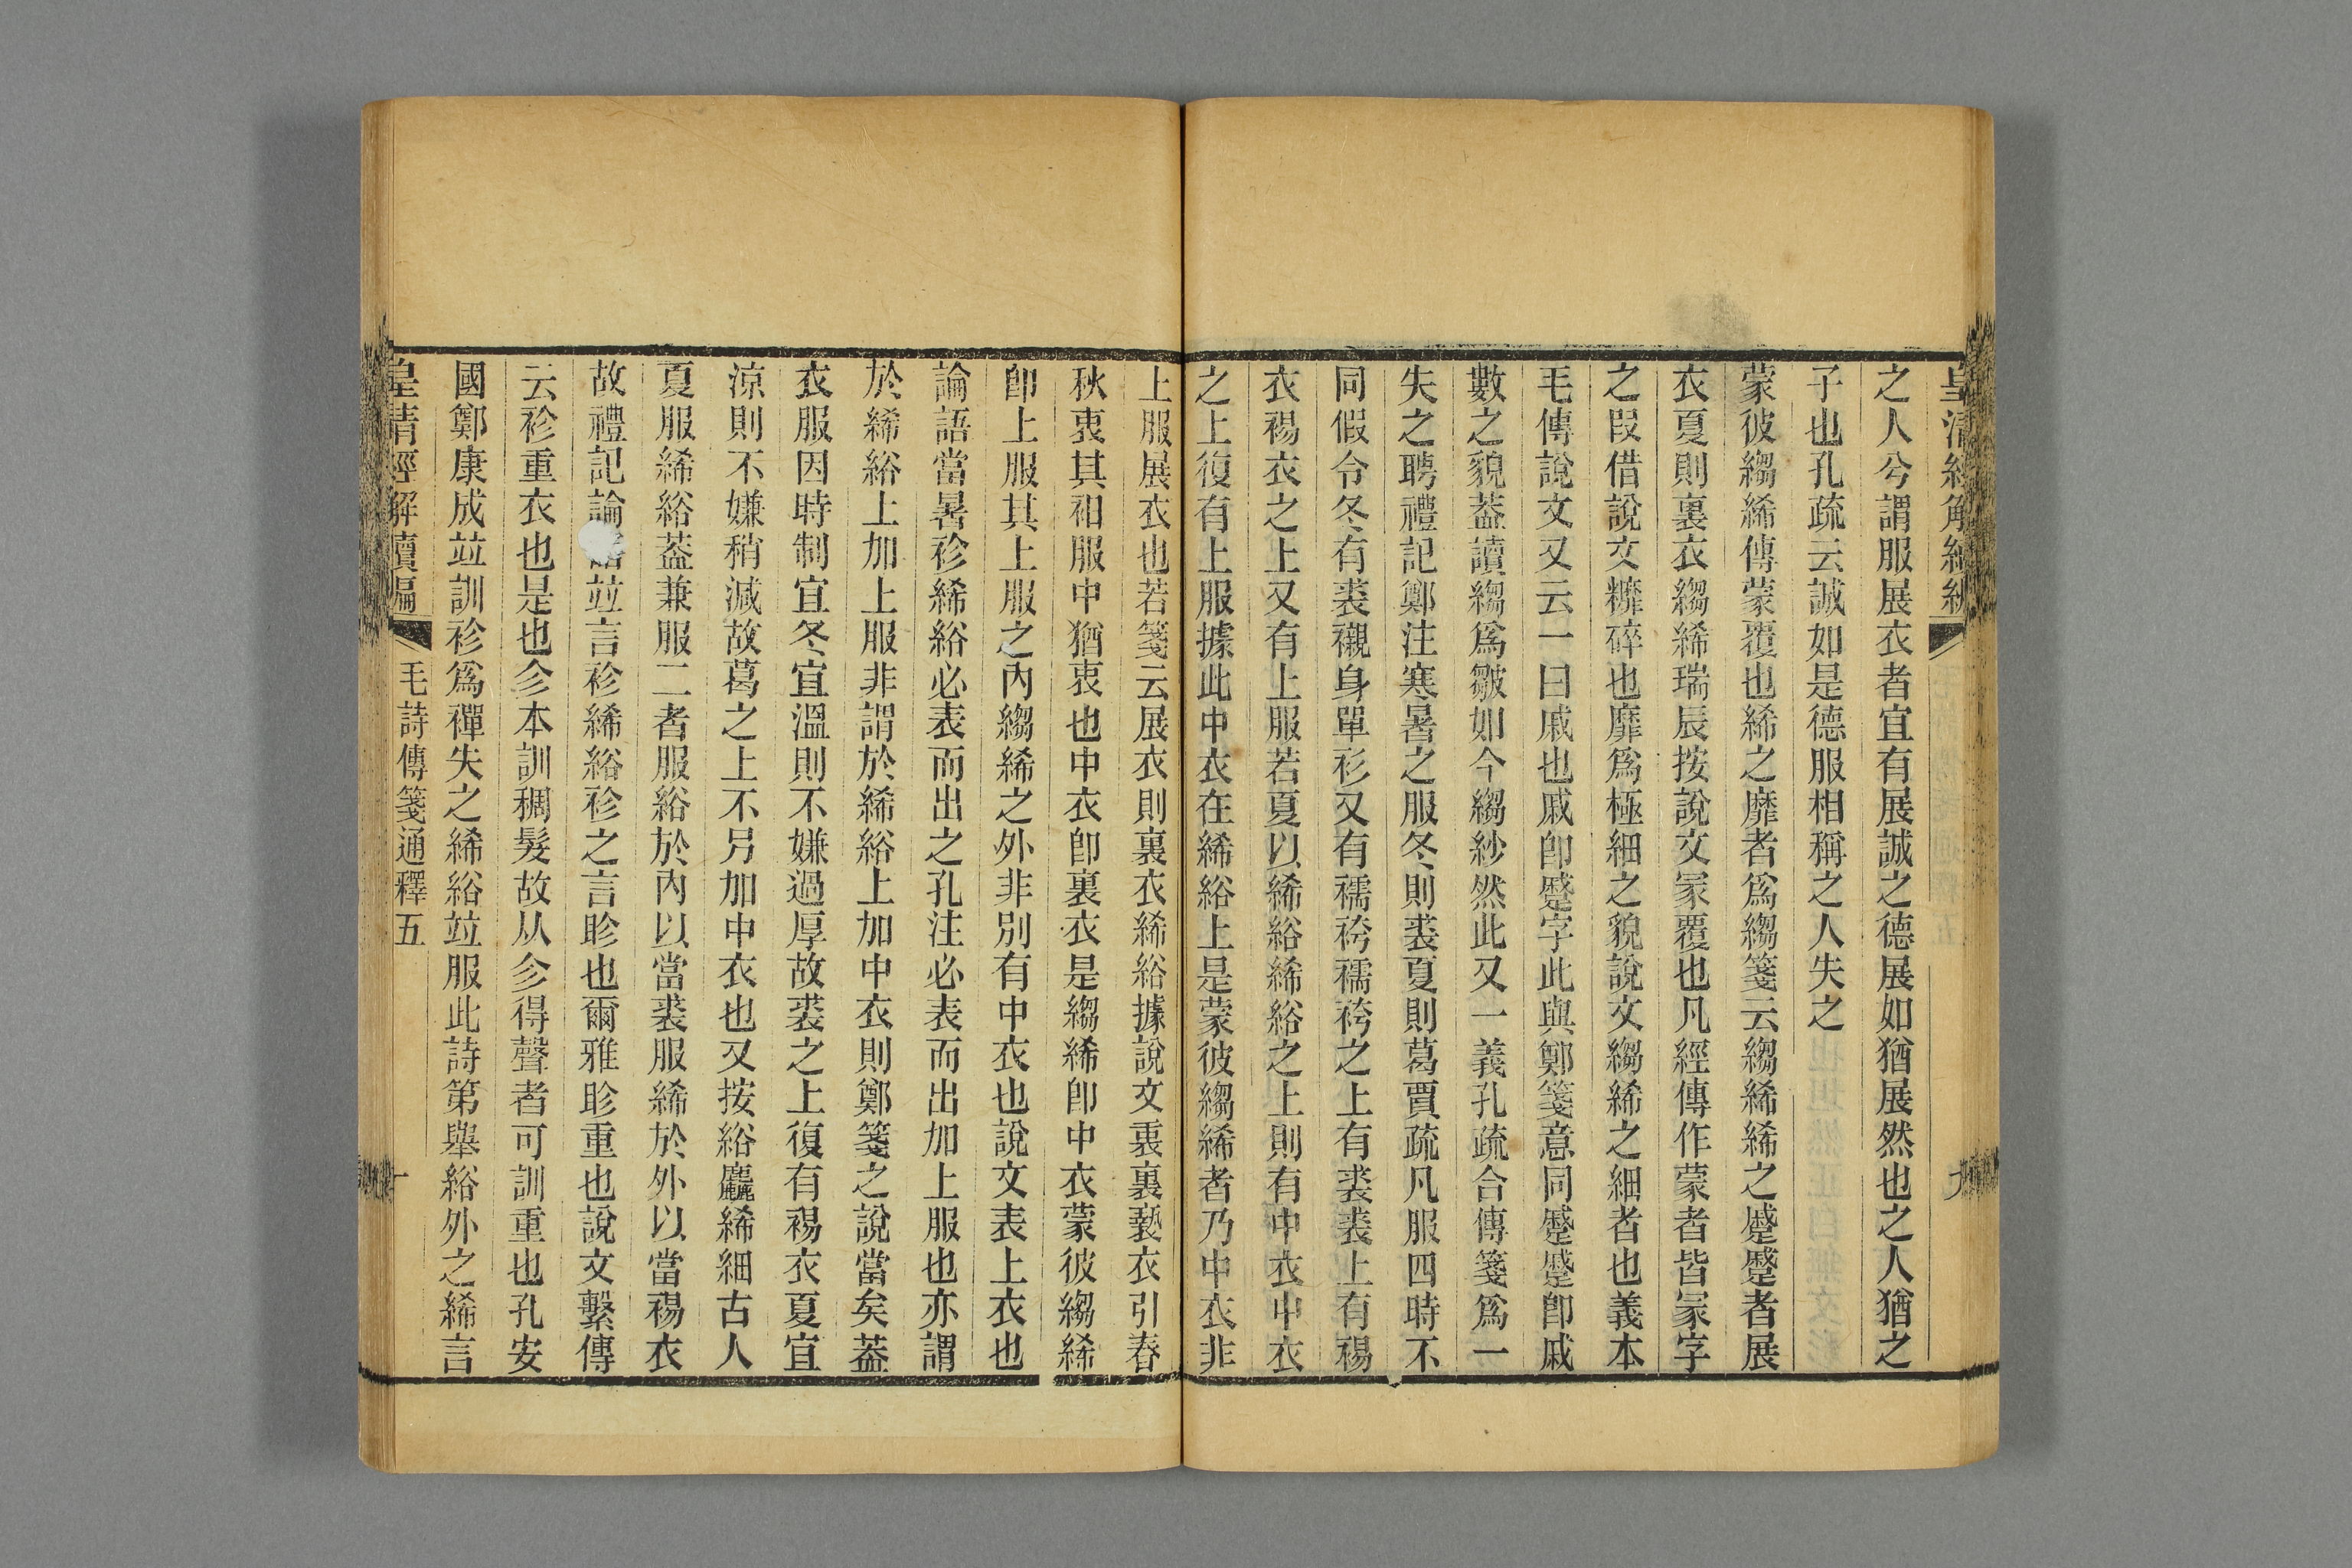 之人兮謂服展衣者宜有展誠之德展如猶展然也之人猶之
子也孔疏云誠如是德服相稱之人失之
蒙彼縐絺傳蒙覆也絺之靡者爲縐箋云縐絺絺之蹙蹙者展
衣夏則裏衣縐絺瑞辰按說文冡覆也凡經傳作蒙者皆冡字
之叚借說文䊳碎也靡爲極細之貌說文縐絺之細者也義本
毛傳說文又云一曰戚也戚卽蹙字此與鄭箋意同蹙蹙卽戚
數之貌葢讀縐爲皺如今縐紗然此又一義孔疏合傳箋爲一
失之聘禮記鄭注寒暑之服冬則裘夏則葛賈疏凡服四時不
同假令冬有裘襯身單衫又有襦袴襦袴之上有裘裘上有裼
衣裼衣之上又有上服若夏以絺綌絺綌之上則有中衣中衣
之上復有上服據此中衣在絺綌上是蒙彼縐絺者乃中衣非
上服展衣也若箋云展衣則裏衣絺綌據說文衷裏褻衣引春
秋衷其衵服中猶衷也中衣卽裏衣是縐絺卽中衣蒙彼縐絺
卽上服其上服之內縐絺之外非別有中衣也說文表上衣也
論語當暑袗絺綌必表而出之孔注必表而出加上服也亦謂
於絺綌上加上服非謂於絺綌上加中衣則鄭箋之說當矣葢
衣服因時制宜冬宜溫則不嫌過厚故裘之上復有裼衣夏宜
涼則不嫌稍減故葛之上不另加中衣也又按綌麤絺細古人
夏服絺綌葢兼服二者服綌於內以當裘服絺於外以當裼衣
故禮記論語竝言袗絺綌袗之言眕也爾雅眕重也說文繫傳
云袗重衣也是也㐱本訓稠髮故从㐱得聲者可訓重也孔安
國鄭康成竝訓袗爲襌失之絺綌竝服此詩第舉綌外之絺言
皇清經解續編 毛詩傳箋通釋五